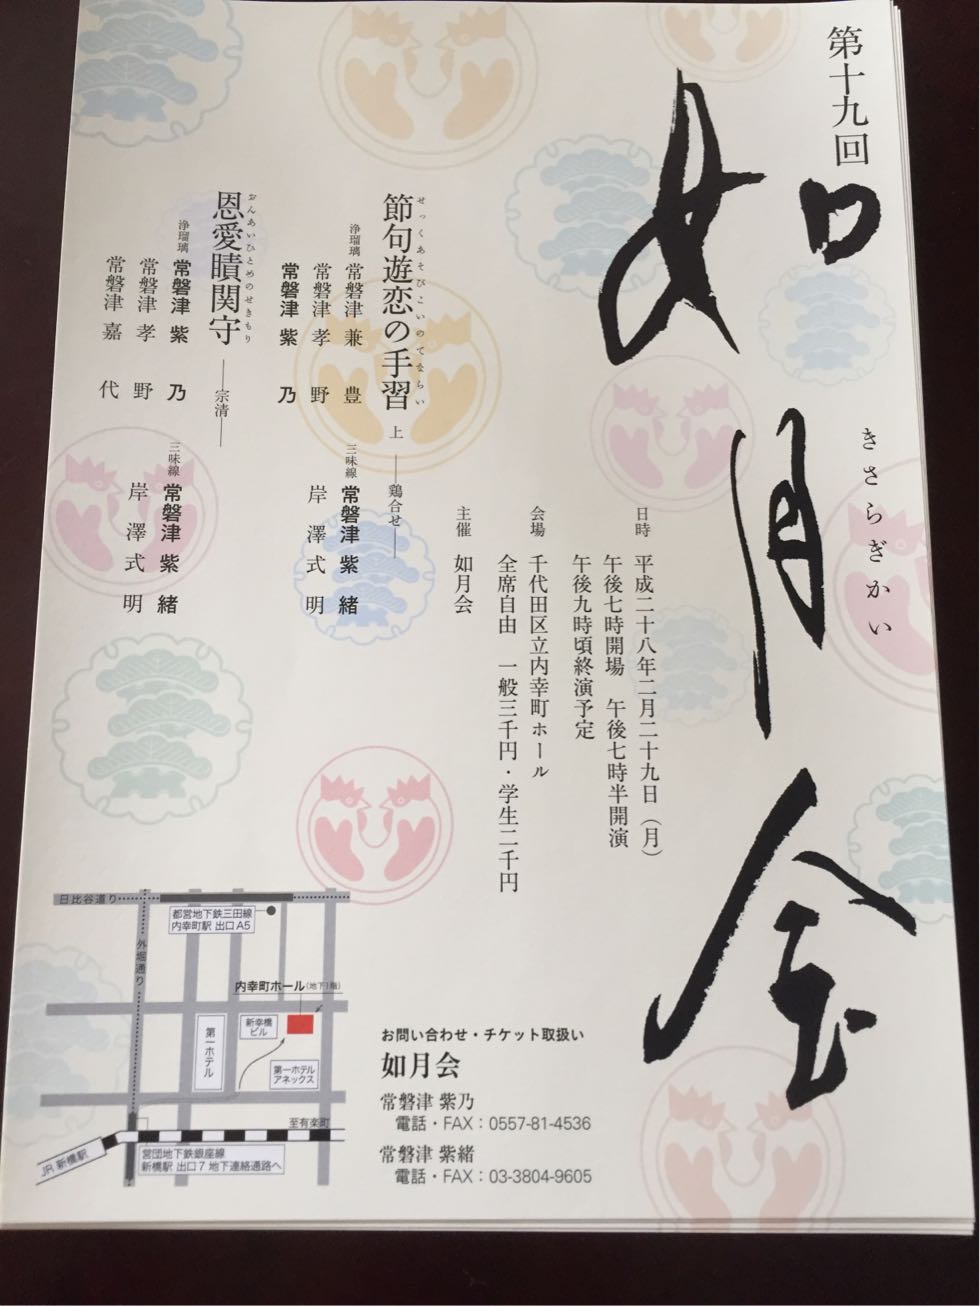 第十九回
如月会
きさらぎかい
日時 平成二十八年二月二十九日（月）
午後七時開場 午後七時半開演
午後九時頃終演予定
会場 千代田区立内幸町ホール
全席自由 一般三千円・学生二千円
主催 如月会
せっくあそびこいのてならい
節句遊恋の手習 上 ―鶏合せ―
浄瑠璃 常磐津 兼豊
常磐津 孝野
常磐津 紫乃
三味線 常磐津 紫緒
岸澤式明
おんあいひとめのせきもり
恩愛瞔関守 ―宗清―
浄瑠璃 常磐津 紫乃
常磐津 孝野
常磐津 嘉代
三味線 常磐津 紫緒
岸澤式明
日比谷通り
都営地下鉄三田線
内幸町駅 出口A5
外堀通り
内幸町ホール(地下1階)
新幸橋
ビル
第一ホテル
第一ホテル
アネックス
至有楽町
JR 新橋駅
営団地下鉄銀座線
新橋駅 出口7 地下連絡通路へ
お問い合わせ・チケット取扱い
如月会
常磐津 紫乃
電話・FAX：0557-81-4536
常磐津 紫緒
電話・FAX：03-3804-9605